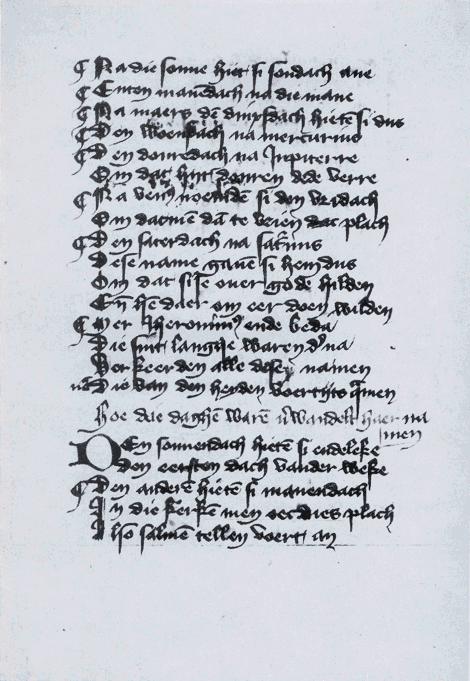 ¶ Na die sonne hietē si sondach ane
¶ Enten maēdach na die mane
¶ Na maers dē dinxsdach hietē si dus
¶ Den woensdach na mercurius
¶ Den donredach na Jupiterre
Om dat hijt donren dede verre
¶ Na noemdē si den vridach
Om datmē dā te plach
¶ Den saterdach na
Dese name gauē si hem dus
Om dat sise ouer gode hilden
Eñ hē daer om eer doen wilden
¶ Mer Jheronimꝰ ende beda
Die sint langhe waren dʼna
Verkeerden alle deser namen
Die van den heyden voert
Hoe die daghē warē wandelt haer na
men
DEn sonnendach hietē si endeleke
Den eersten dach vander weke
¶ Den anderē hietē si manendach
In die kerke men oec dies plach
Also salmē tellen voert an